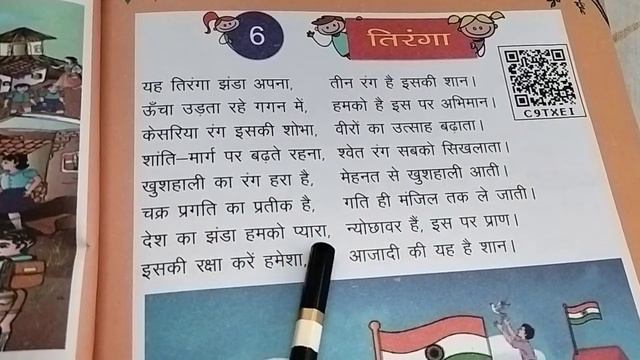 6
तिरंगा
यह तिरंगा झंडा अपना, तीन रंग है इसकी शान।
ऊँचा उड़ता रहे गगन में, हमको है इस पर अभिमान।
केसरिया रंग इसकी शोभा, वीरों का उत्साह बढ़ाता।
शांति–मार्ग पर बढ़ते रहना, श्वेत रंग सबको सिखलाता।
खुशहाली का रंग हरा है, मेहनत से खुशहाली आती।
चक्र प्रगति का प्रतीक है, गति ही मंजिल तक ले जाती।
देश का झंडा हमको प्यारा, न्योछावर हैं, इस पर प्राण।
इसकी रक्षा करें हमेशा, आजादी की यह है शान।
C9TXEI